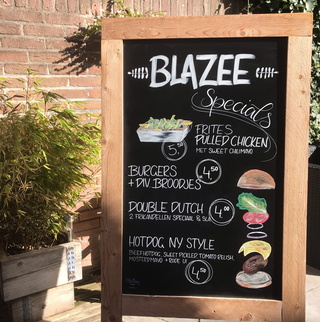 BLAZEE
Specials
FRITES
PULLED CHICKEN
MET SWEET CHILIMAYO
5,-
BURGERS
+ DIV. BROODJES
4,50
DOUBLE DUTCH
2 FRIKANDELLEN SPECIAAL
4,00
HOTDOG, NY STYLE
BEEFHOTDOG, SWEET PICKLED, TOMATO RELISH,
MOSTERDMAYO + RODE UI
4,50